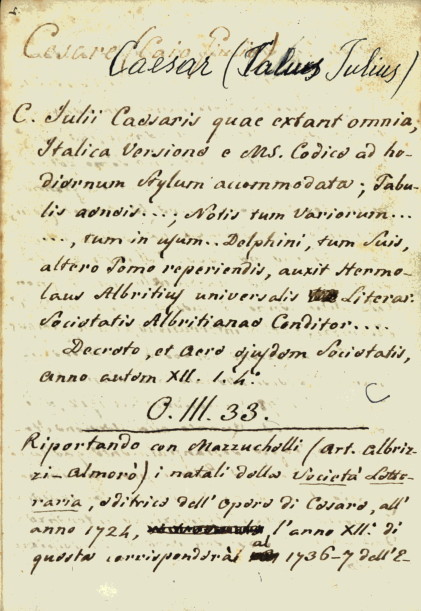 Cesare (Caio
Caesar (Caius Julius)
C. Iulii Caesaris quae extant omnia,
Italica Versione e MS. Codice ad ho-
diernum stylum accommodata; Tabu-
lis aeneis...; Notis tum Variorum...
..., tum in usum.. Delphini, tum suis,
altero Tomo reperiendis, auxit Hermo-
laus Albritius universalis Literar.
Societatis Albritianae Conditor....
Decreto, et aere ejusdem Societatis,
anno autem XII. 1. 4.º
O. III. 33.
Riportando con Mazzuchelli (Art. Albriz-
zi-Almorò) i natali della Società Lette-
raria, editrice dell'Opere di Cesare, all'
anno 1724, l'anno XII.º di
questa corrisponderà al 1736-7 dell'E-